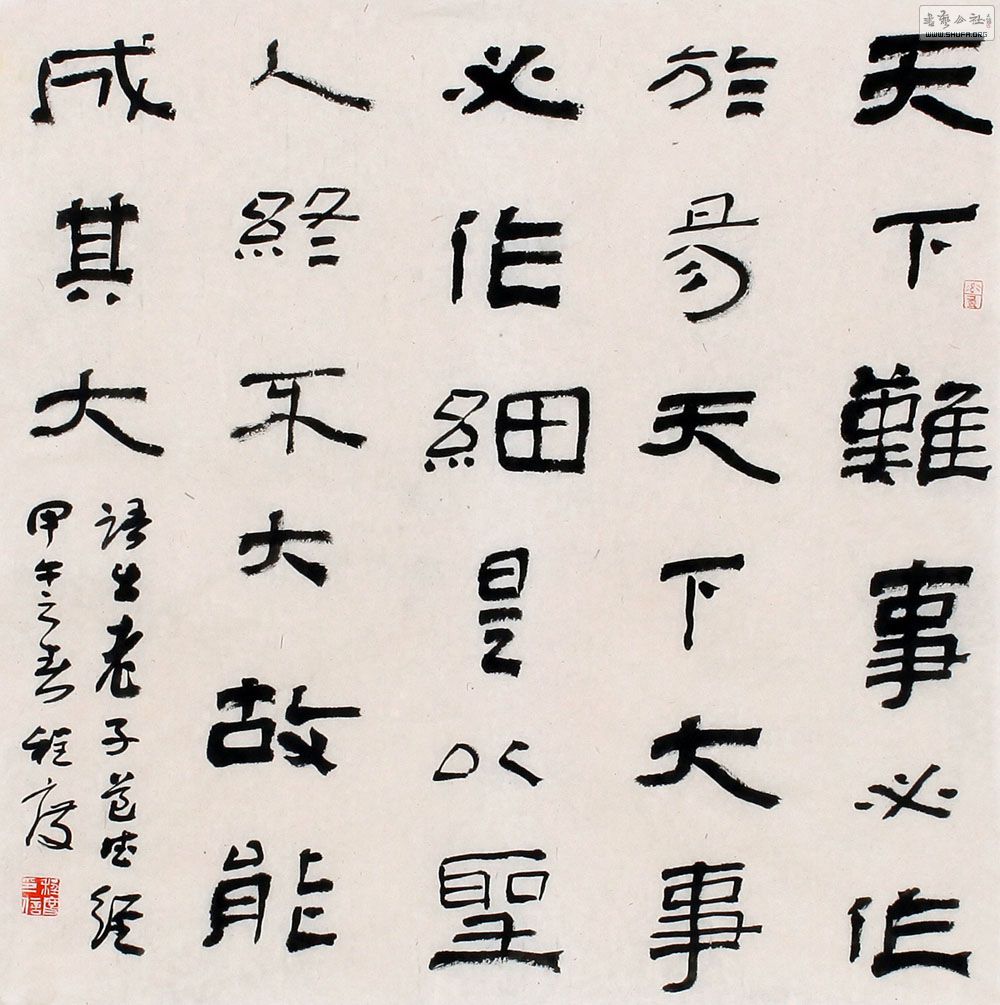 天下難事必作
於易天下大事
必作細是以聖
人終不大故能
成其大
語出老子道德經
甲午之春程度
書藝公社
WWW.SHUFA.ORG